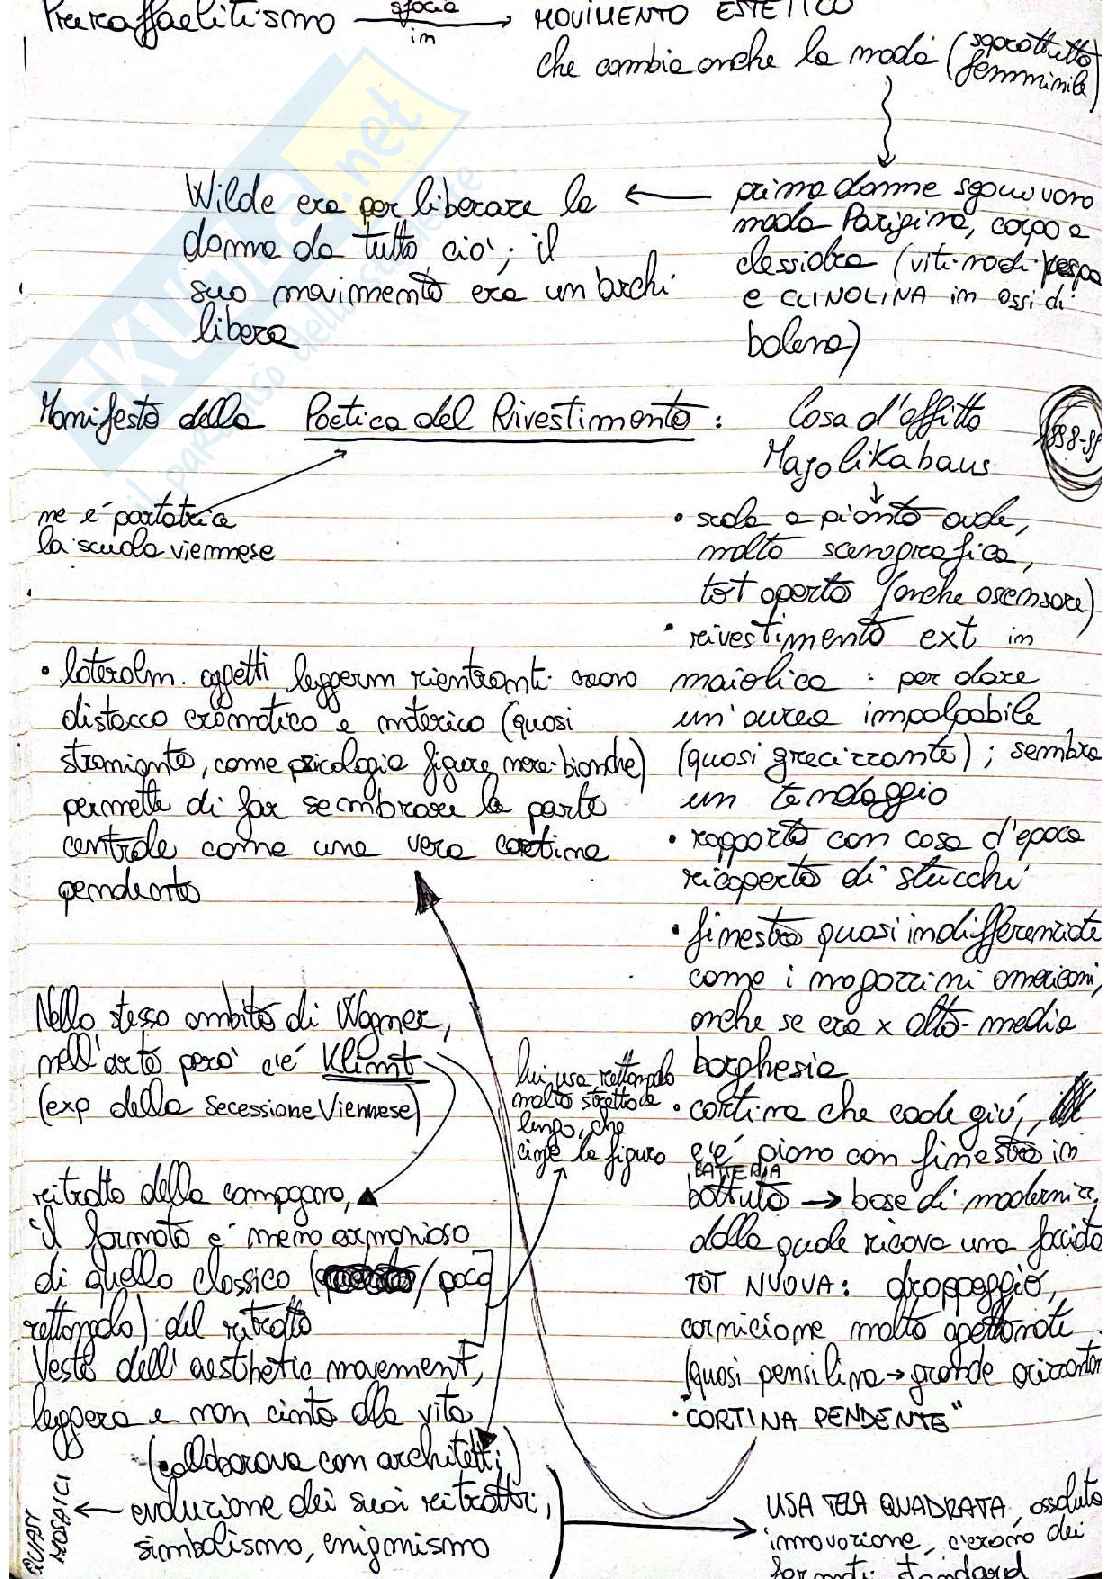 Preraffaelitismo sfocia in → MOVIMENTO ESTETICO
che cambia anche la moda (soprattutto
femminile)
prima donne
moda Parigina, corpo a
clessidra (vitino di vespa
e CLINOLINA in ossi di
balena)
Wilde era per liberare la
donna da tutto ciò; il
suo movimento era un'archi
libera
Manifesto della Poetica del Rivestimento:
ne è portatrice
la scuola viennese
Casa d'affitto
Majolikahaus
1898-99
• scala a pianta ovale,
molto scenografica,
tot aperta (anche ascensore)
• rivestimento ext in
maiolica: per dare
un'aurea impalpabile
(quasi grecizzante); sembra
un tendaggio
• rapporto con casa d'epoca
ricoperta di stucchi
• finestre quasi indifferenziate
come i magazzini americani,
anche se era x alto-media
borghesia
• cortina che cade giù,
c'è piano con finestre in
BATTERIA
battuta → base di
dalla quale ricava una facciata
TOT NUOVA: drappeggio,
cornicione molto aggettante
(quasi pensilina → grande
• "CORTINA PENDENTE"
• lateralm. aggetti leggerm rientranti: creano
distacco cromatico e materico (quasi
straniante, come psicologia figure nere-bianche)
permette di far sembrare la parte
centrale come una vera cortina
pendente
Nello stesso ambito di Wagner,
nell'arte però c'è Klimt
(exp della Secessione Viennese)
lui usa rettangolo
molto stretto e
lungo, che
cinge la figura
ritratto della compagna,
il formato è meno armonioso
di quello classico (/ poco
rettangolo) del ritratto
Veste dell'aesthetic movement,
leggera e non cinta alla vita
(collaborava con architetti)
evoluzione dei suoi ritratti,
simbolismo, enigmismo
QUASI
MOSAICI
USA TELA QUADRATA, assoluta
innovazione, c'erano dei
formati standard
SKUOLA.net
il paradiso dello studente